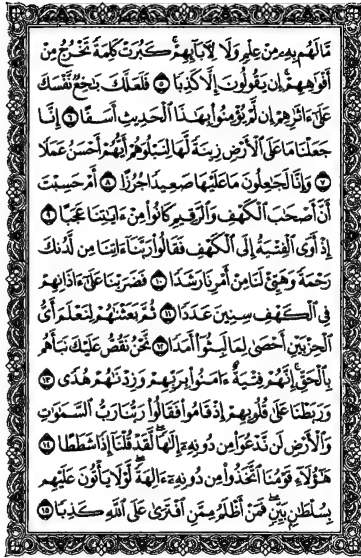 مَّا لَهُم بِهِۦ مِنْ عِلْمٍ وَلَا لِـَٔابَآئِهِمْ ۚ كَبُرَتْ كَلِمَةً تَخْرُجُ مِنْ
أَفْوَٰهِهِمْ ۚ إِن يَقُولُونَ إِلَّا كَذِبًا ٥ فَلَعَلَّكَ بَـٰخِعٌ نَّفْسَكَ
عَلَىٰٓ ءَاثَـٰرِهِمْ إِن لَّمْ يُؤْمِنُوا۟ بِهَـٰذَا ٱلْحَدِيثِ أَسَفًا ٦ إِنَّا
جَعَلْنَا مَا عَلَى ٱلْأَرْضِ زِينَةً لَّهَا لِنَبْلُوَهُمْ أَيُّهُمْ أَحْسَنُ عَمَلًا
٧ وَإِنَّا لَجَـٰعِلُونَ مَا عَلَيْهَا صَعِيدًا جُرُزًا ٨ أَمْ حَسِبْتَ
أَنَّ أَصْحَـٰبَ ٱلْكَهْفِ وَٱلرَّقِيمِ كَانُوا۟ مِنْ ءَايَـٰتِنَا عَجَبًا ٩
إِذْ أَوَى ٱلْفِتْيَةُ إِلَى ٱلْكَهْفِ فَقَالُوا۟ رَبَّنَآ ءَاتِنَا مِن لَّدُنكَ
رَحْمَةً وَهَيِّئْ لَنَا مِنْ أَمْرِنَا رَشَدًا ١٠ فَضَرَبْنَا عَلَىٰٓ ءَاذَانِهِمْ
فِى ٱلْكَهْفِ سِنِينَ عَدَدًا ١١ ثُمَّ بَعَثْنَـٰهُمْ لِنَعْلَمَ أَىُّ
ٱلْحِزْبَيْنِ أَحْصَىٰ لِمَا لَبِثُوٓا۟ أَمَدًا ١٢ نَّحْنُ نَقُصُّ عَلَيْكَ نَبَأَهُم
بِٱلْحَقِّ ۚ إِنَّهُمْ فِتْيَةٌ ءَامَنُوا۟ بِرَبِّهِمْ وَزِدْنَـٰهُمْ هُدًى ١٣
وَرَبَطْنَا عَلَىٰ قُلُوبِهِمْ إِذْ قَامُوا۟ فَقَالُوا۟ رَبُّنَا رَبُّ ٱلسَّمَـٰوَٰتِ
وَٱلْأَرْضِ لَن نَّدْعُوَا۟ مِن دُونِهِۦٓ إِلَـٰهًا ۖ لَّقَدْ قُلْنَآ إِذًا شَطَطًا ١٤
هَـٰٓؤُلَآءِ قَوْمُنَا ٱتَّخَذُوا۟ مِن دُونِهِۦٓ ءَالِهَةً ۖ لَّوْلَا يَأْتُونَ عَلَيْهِم
بِسُلْطَـٰنٍۭ بَيِّنٍ ۖ فَمَنْ أَظْلَمُ مِمَّنِ ٱفْتَرَىٰ عَلَى ٱللَّهِ كَذِبًا ١٥